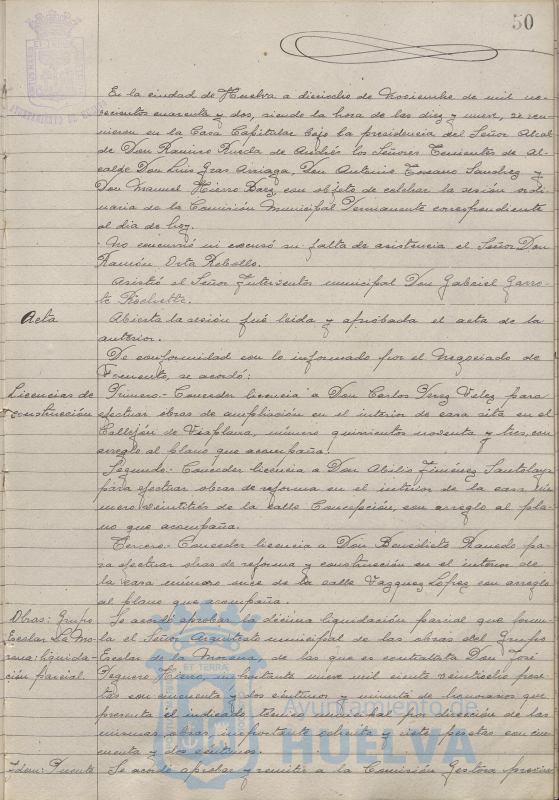 50
En la ciudad de Huelva a dieciocho de Noviembre de mil no-
vecientos cuarenta y dos, siendo la hora de las diez y nueve, se reu-
nieron en la Casa Capitular bajo la presidencia del Señor Alcal
de Don Ramiro Rueda de Andrés los Señores Tenientes de Al-
calde Don Luis Gras Arriaga, Don Antonio Toscano Sanchez y
Don Manuel Hierro Baez con objeto de celebrar la sesión ordi
naria de la Comisión Municipal Permanente correspondiente
al dia de hoy.
No concurrió ni excusó su falta de asistencia el Señor Don
Ramón Orta Rebollo.
Asistió el Señor Interventor municipal Don Gabriel Garro-
te
Acta
Abierta la sesión fué leida y aprobada el acta de la
anterior.
De conformidad con lo informado por el Negociado de
Fomento, se acordó:
Licencias de
construcción
Primero- Conceder licencia a Don Carlos Perez Velez para
efectuar obras de ampliación en el interior de casa sita en el
Callejón de Vizplana, número quinientos noventa y tres, con
arreglo al plano que acompaña.
Segundo- Conceder licencia a Don Abilio Jiménez Santolaya
para efectuar obras de reforma en el interior de la casa nú
mero veintitrés de la calle Concepción, con arreglo al pla-
no que acompaña.
Tercero- Conceder licencia a Don Benedicto pa-
ra efectuar obras de reforma y construcción en el interior de
la casa número once de la calle Vazquez Lopez con arreglo
al plano que acompaña.
Obras: Grupo
Escolar La Mo-
rana: liquida-
ción parcial.
Se acordó aprobar la décima liquidación parcial que formu-
la el Señor Arquitecto municipal de las obras del Grupo
Escolar de la Morana, de las que es contratista Don José
Peguero Hierro, importante nueve mil ciento veintiocho pese-
tas con cincuenta y dos céntimos y minuta de honorarios que
presenta el indicado técnico municipal por dirección de las
mismas obras, importante ochenta y siete pesetas con cin-
cuenta y dos céntimos.
Idem: Puente
Se acordó aprobar y remitir a la Comisión Gestora provin-
ET TERRA
Ayuntamiento de
HUELVA